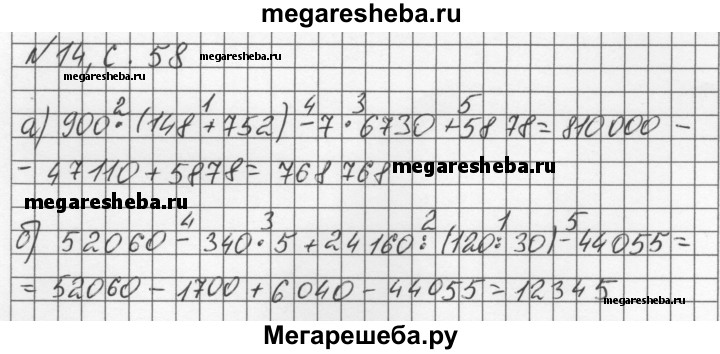 megaresheba.ru
№ 14, с. 58 megaresheba.ru
megaresheba.ru
2 1 4 3 5
а) 900 · (148 + 752) - 7 · 6730 + 5878 = 810000 -
- 47110 + 5878 = 768 768 megaresheba.ru
megaresheba.ru
4 3 2 1 5
б) 52060 - 340 · 5 + 24160 : (120 : 30) - 44055 =
= 52060 - 1700 + 6040 - 44055 = 12345 megaresheba.ru
Мегарешеба.ру